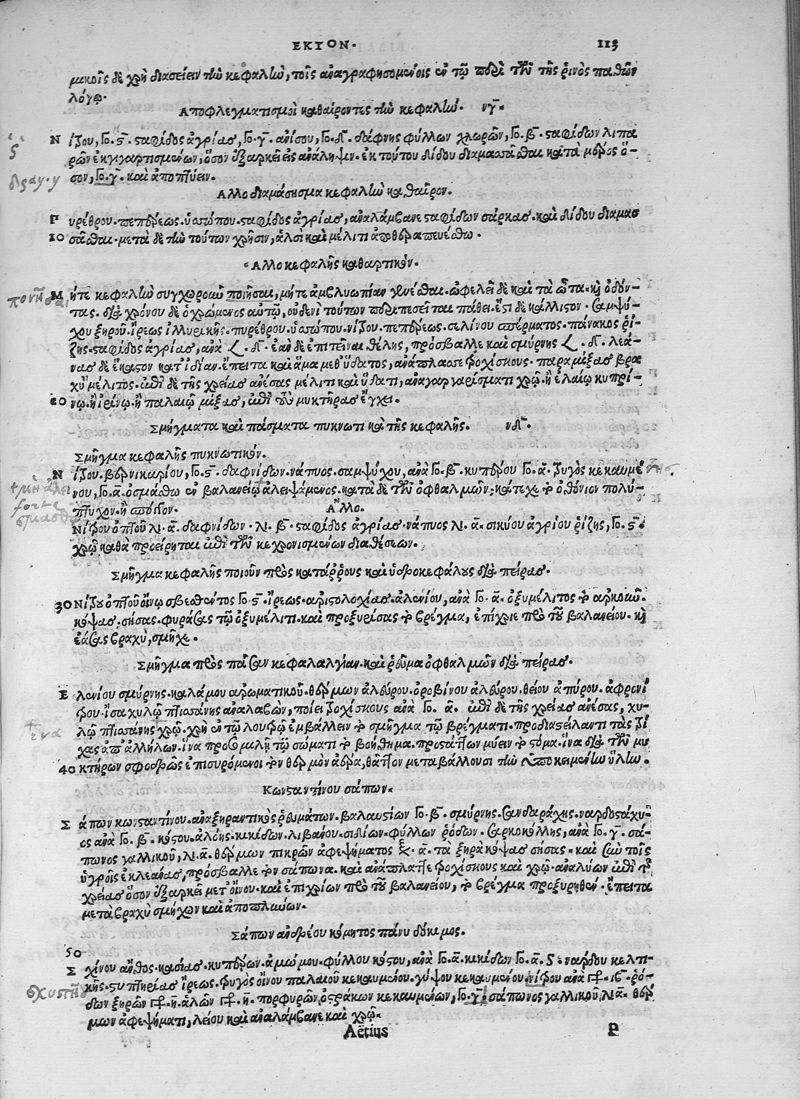 ΕΚΤΟΝ. 113
μικοῖς δὲ χρὴ διασείειν τὴν κεφαλὴν, τοῖς ἀναγραφησομένοις ἐν τῷ περὶ τῶν τῆς ῥινὸς παθῶν
λόγῳ.
Αποφλεγματισμοὶ καθαίροντες τὴν κεφαλήν. νγ.
Νίτρου, γο. ϛ. σταφίδος ἀγρίας, γο. γ. ἀνίσου, γο. δ. δάφνης φύλλων χλωρῶν, γο. β. σταφίδων λιπα
ρῶν ἐκγιγαρτισμένων, ὅσον ἐξαρκεῖ εἰς ἀνάληψιν. ἐκ τούτου δίδου διαμασᾶσθαι κατὰ μέρος ὅ-
σον, γο. γ. καὶ ἀποπτύειν.
Αλλο διαμάσημα κεφαλὴν καθαῖρον.
Πυρέθρου. πεπέρεως. ὑσσώπου. σταφίδος ἀγρίας, ἀναλάμβανε σταφίδων σάρκας. καὶ δίδου διαμασ
10 σᾶσθαι. μετὰ δὲ τὴν τούτων χρῆσιν, ἁλσὶ καὶ μέλιτι ἀποθεραπευέσθω.
Αλλο κεφαλῆς καθαρτικόν.
Μήτε κεφαλὴν συγχωροῦν ποιῆσαι, μήτε ἀμβλυωπίαν γενέσθαι. ὠφελεῖ δὲ καὶ τὰ ὦτα. καὶ ὀδόν-
τας. διὰ χρόνου δὲ ὁ χρώμενος αὐτῷ, οὐδενὶ τούτων περιπεσεῖται πάθει. ἔστι δὲ κάλλιστον. σαμψύ-
χου ξηροῦ. ἴρεως ἰλλυρικῆς. πυρέθρου. ὑσσώπου. νίτρου. πεπέρεως. σελίνου σπέρματος. πάνακος ῥί-
ζης. σταφίδος ἀγρίας, ἀνὰ 𐅻. δ. ἐὰν δὲ ἐπιτεῖναι θέλης, πρόσβαλλε καὶ σμύρνης 𐅻. δ. λεά-
νας δὲ ἕκαστον κατ' ἰδίαν. ἔπειτα καὶ ἅμα μεθ' ὕδατος, ἀνάπλασσε τροχίσκους. παραμίξας βρα
χὺ μέλιτος. ἐπὶ δὲ τῆς χρείας ἀνέσας μέλιτι καὶ ὕδατι, ἀναγαργαρίσματι χρῶ. ἢ ἐλαίῳ κυπρί-
20 νῳ. ἢ ἰρίνῳ. ἢ παλαιῷ μίξας, ἐπὶ τοὺς μυκτῆρας ἔγχει.
Σμήγματα καὶ πάσματα πυκνωτικὰ τῆς κεφαλῆς. νδ.
Σμῆγμα κεφαλῆς πυκνωτικόν.
Νίτρου. βερνικαρίου, γο. ϛ. δαφνίδων. νάπυος. σαμψύχου, ἀνὰ γο. β. κυπέρου γο. α. τρυγὸς κεκαυμέ
νου, γο. α. ὀσμάσθω ἐν βαλανείῳ ἀλειψάμενος. κατὰ δὲ τῶν ὀφθαλμῶν, κατεχέτω ὀθόνιον πολύ-
πτυχον. ἢ σπόγγον. Αλλο.
Νίτρου ὀπτοῦ λι. α. δαφνίδων. λι. β. σταφίδος ἀγρίας. νάπυος λι. α. σικύου ἀγρίου ῥίζης, γο. ϛ.
χρῶ καθὰ προείρηται ἐπὶ τῶν κεχρονισμένων διαθέσεων.
Σμῆγμα κεφαλῆς ποιοῦν πρὸς κατάρρους καὶ ὑδροκεφάλους διὰ πείρας.
30 Νίτρου ὀπτοῦ οἴνῳ σβεσθέντος γο. ϛ. ἴρεως. ἀριστολοχίας. ἑλενίου, ἀνὰ γο. α. ὀξυμέλιτος τὸ ἀρκοῦν.
κόψας. σήσας. φυράσας τῷ ὀξυμέλιτι. καὶ προξυρίσας τὸ βρέγμα, ἐπίχριε πρὸ τοῦ βαλανείου. καὶ
ἐάσας βραχύ, σμῆχε.
Σμῆγμα πρὸς πᾶσαν κεφαλαλγίαν. καὶ ῥεῦμα ὀφθαλμῶν διὰ πείρας.
Ελενίου σμύρνης. καλάμου ἀρωματικοῦ. θέρμων ἀλεύρου. ὀροβίνου ἀλεύρου. θείου ἀπύρου. ἀφρονί
τρου. ἴσα χυλῷ πτισάνης ἀναλαβών, ποίει τροχίσκους ἀνὰ γο. α. ἐπὶ δὲ τῆς χρείας ἀνέσας, χυ-
λῷ πτισάνης χρῶ. χρὴ ἐν τῷ λουτρῷ ἐμβάλλειν τὸ σμῆγμα τῷ βρέγματι. προδιαστείλαντι τὰς τρί
χας ἀπ' ἀλλήλων. ἵνα προσομιλῇ τῷ σώματι τὸ βοήθημα. προστάττων μύειν τὸ στόμα. ἵνα διὰ τῶν μυ
40 κτήρων σφοδρῶς ἐπισυρόμενοι τὸν θερμὸν ἀέρα, θᾶττον μεταβάλλουσι τὴν ὑποκειμένην ὕλην.
Κωνσταντίνου σάπων.
Σάπων κωνσταντίνου. ἀναξηραντικὸς ῥευμάτων. βαλαυστίων γο. β. σμύρνης. σανδαράχης. ναρδοστάχυ-
ος ἀνὰ γο. β. κόστου. ἀλόης. κικίδων. λιβάνου. σιδίων. φύλλων ῥόδων. σαρκοκόλλης, ἀνὰ γο. γ. σά-
πωνος γαλλικοῦ, λι. α. θέρμων πικρῶν ἀφεψήματος ξ. α. τὰ ξηρὰ κόψας σήσας. καὶ σὺν τοῖς
ὑγροῖς ἐκλεάνας, πρόσβαλλε τὸν σάπωνα. καὶ ἀνάπλαττε τροχίσκους καὶ χρῶ. ἀναλύων ἐπὶ τῆς
χρείας ὅσον ἐξαρκεῖ μετ' οἴνου. καὶ ἐπιχρίων πρὸ τοῦ βαλανείου, τὸ βρέγμα προξυρηθέν. ἔπειτα
μετὰ βραχὺ σμήχων καὶ ἀποπλύνων.
Σάπων ἀνδρέου κόμητος πάνυ δόκιμος.
50
Σχίνου ἄνθος. κασίας. κυπέρων. ἀμώμου. φύλλου κόστου, ἀνὰ γο. α. κικίδων γο. α. S. νάρδου κελτι-
κῆς. στυπτηρίας. ἴρεως. τρυγὸς οἴνου παλαιοῦ κεκαυμένου. γύψου κεκαυμένου. νίτρου ἀνὰ γρ. ιϛ. ῥό-
δων ξηρῶν γρ. η. ἁλῶν γρ. η. πορφυρῶν ὀστράκων κεκαυμένων, γο. γ. σάπωνος γαλλικοῦ λι. α. θέρ
μων ἀφεψήματι, λείου καὶ ἀναλάμβανε καὶ χρῶ.
Aëtius P